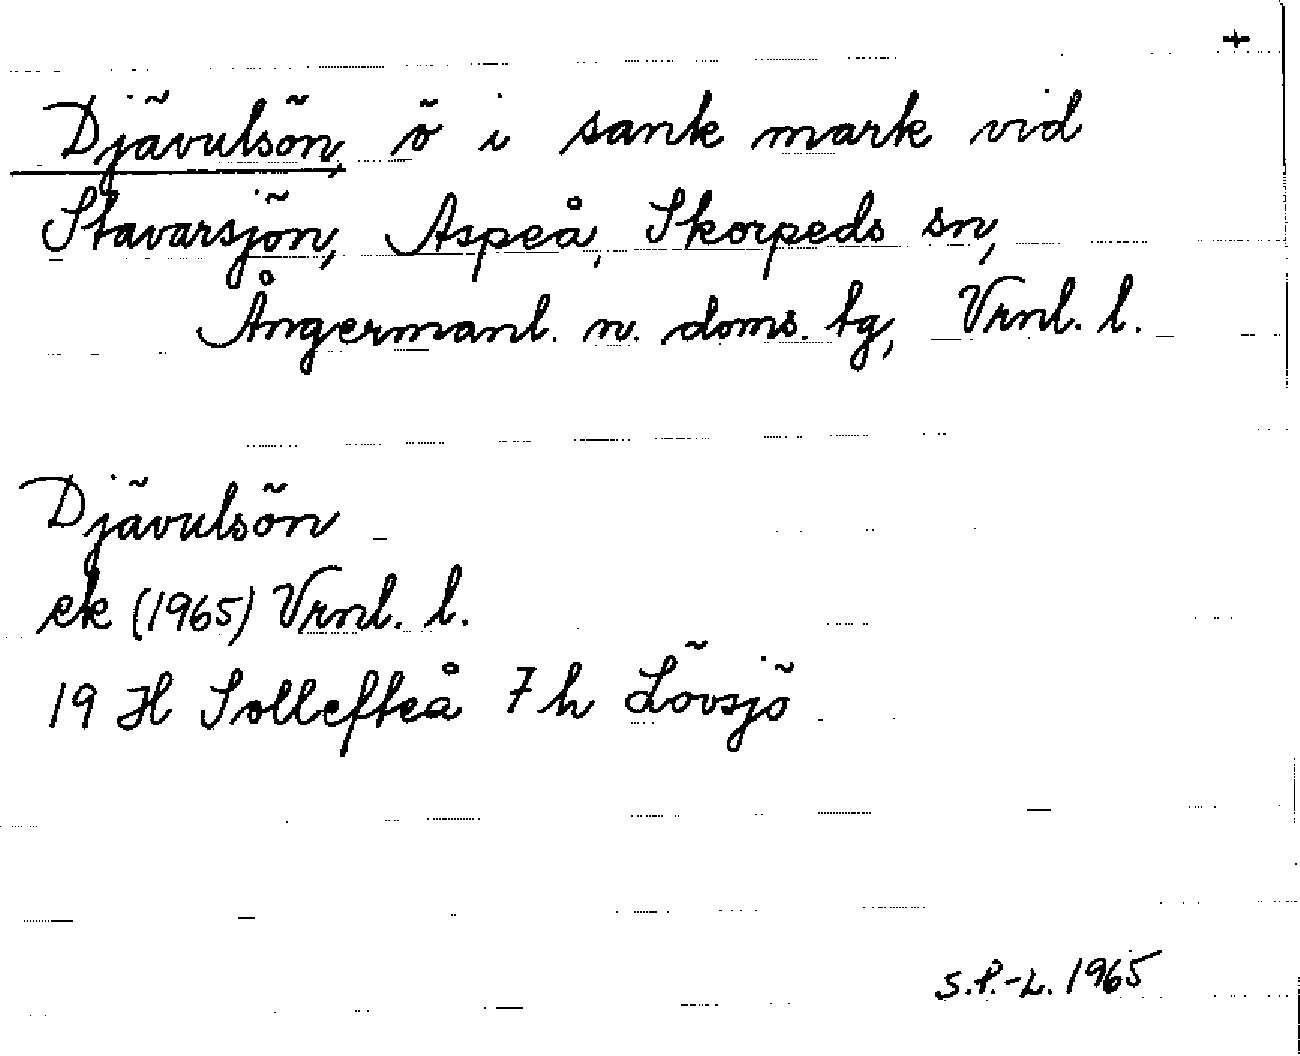 +
Djävulsön, ö i sank mark vid
Stavarsjön, Aspeå, Skorpeds sn,
Ångermanl. n. doms. tg, Vrnl. l.
Djävulsön
ek (1965) Vrnl. l.
19 H Sollefteå 7 h Lövsjö
S.P.-L. 1965